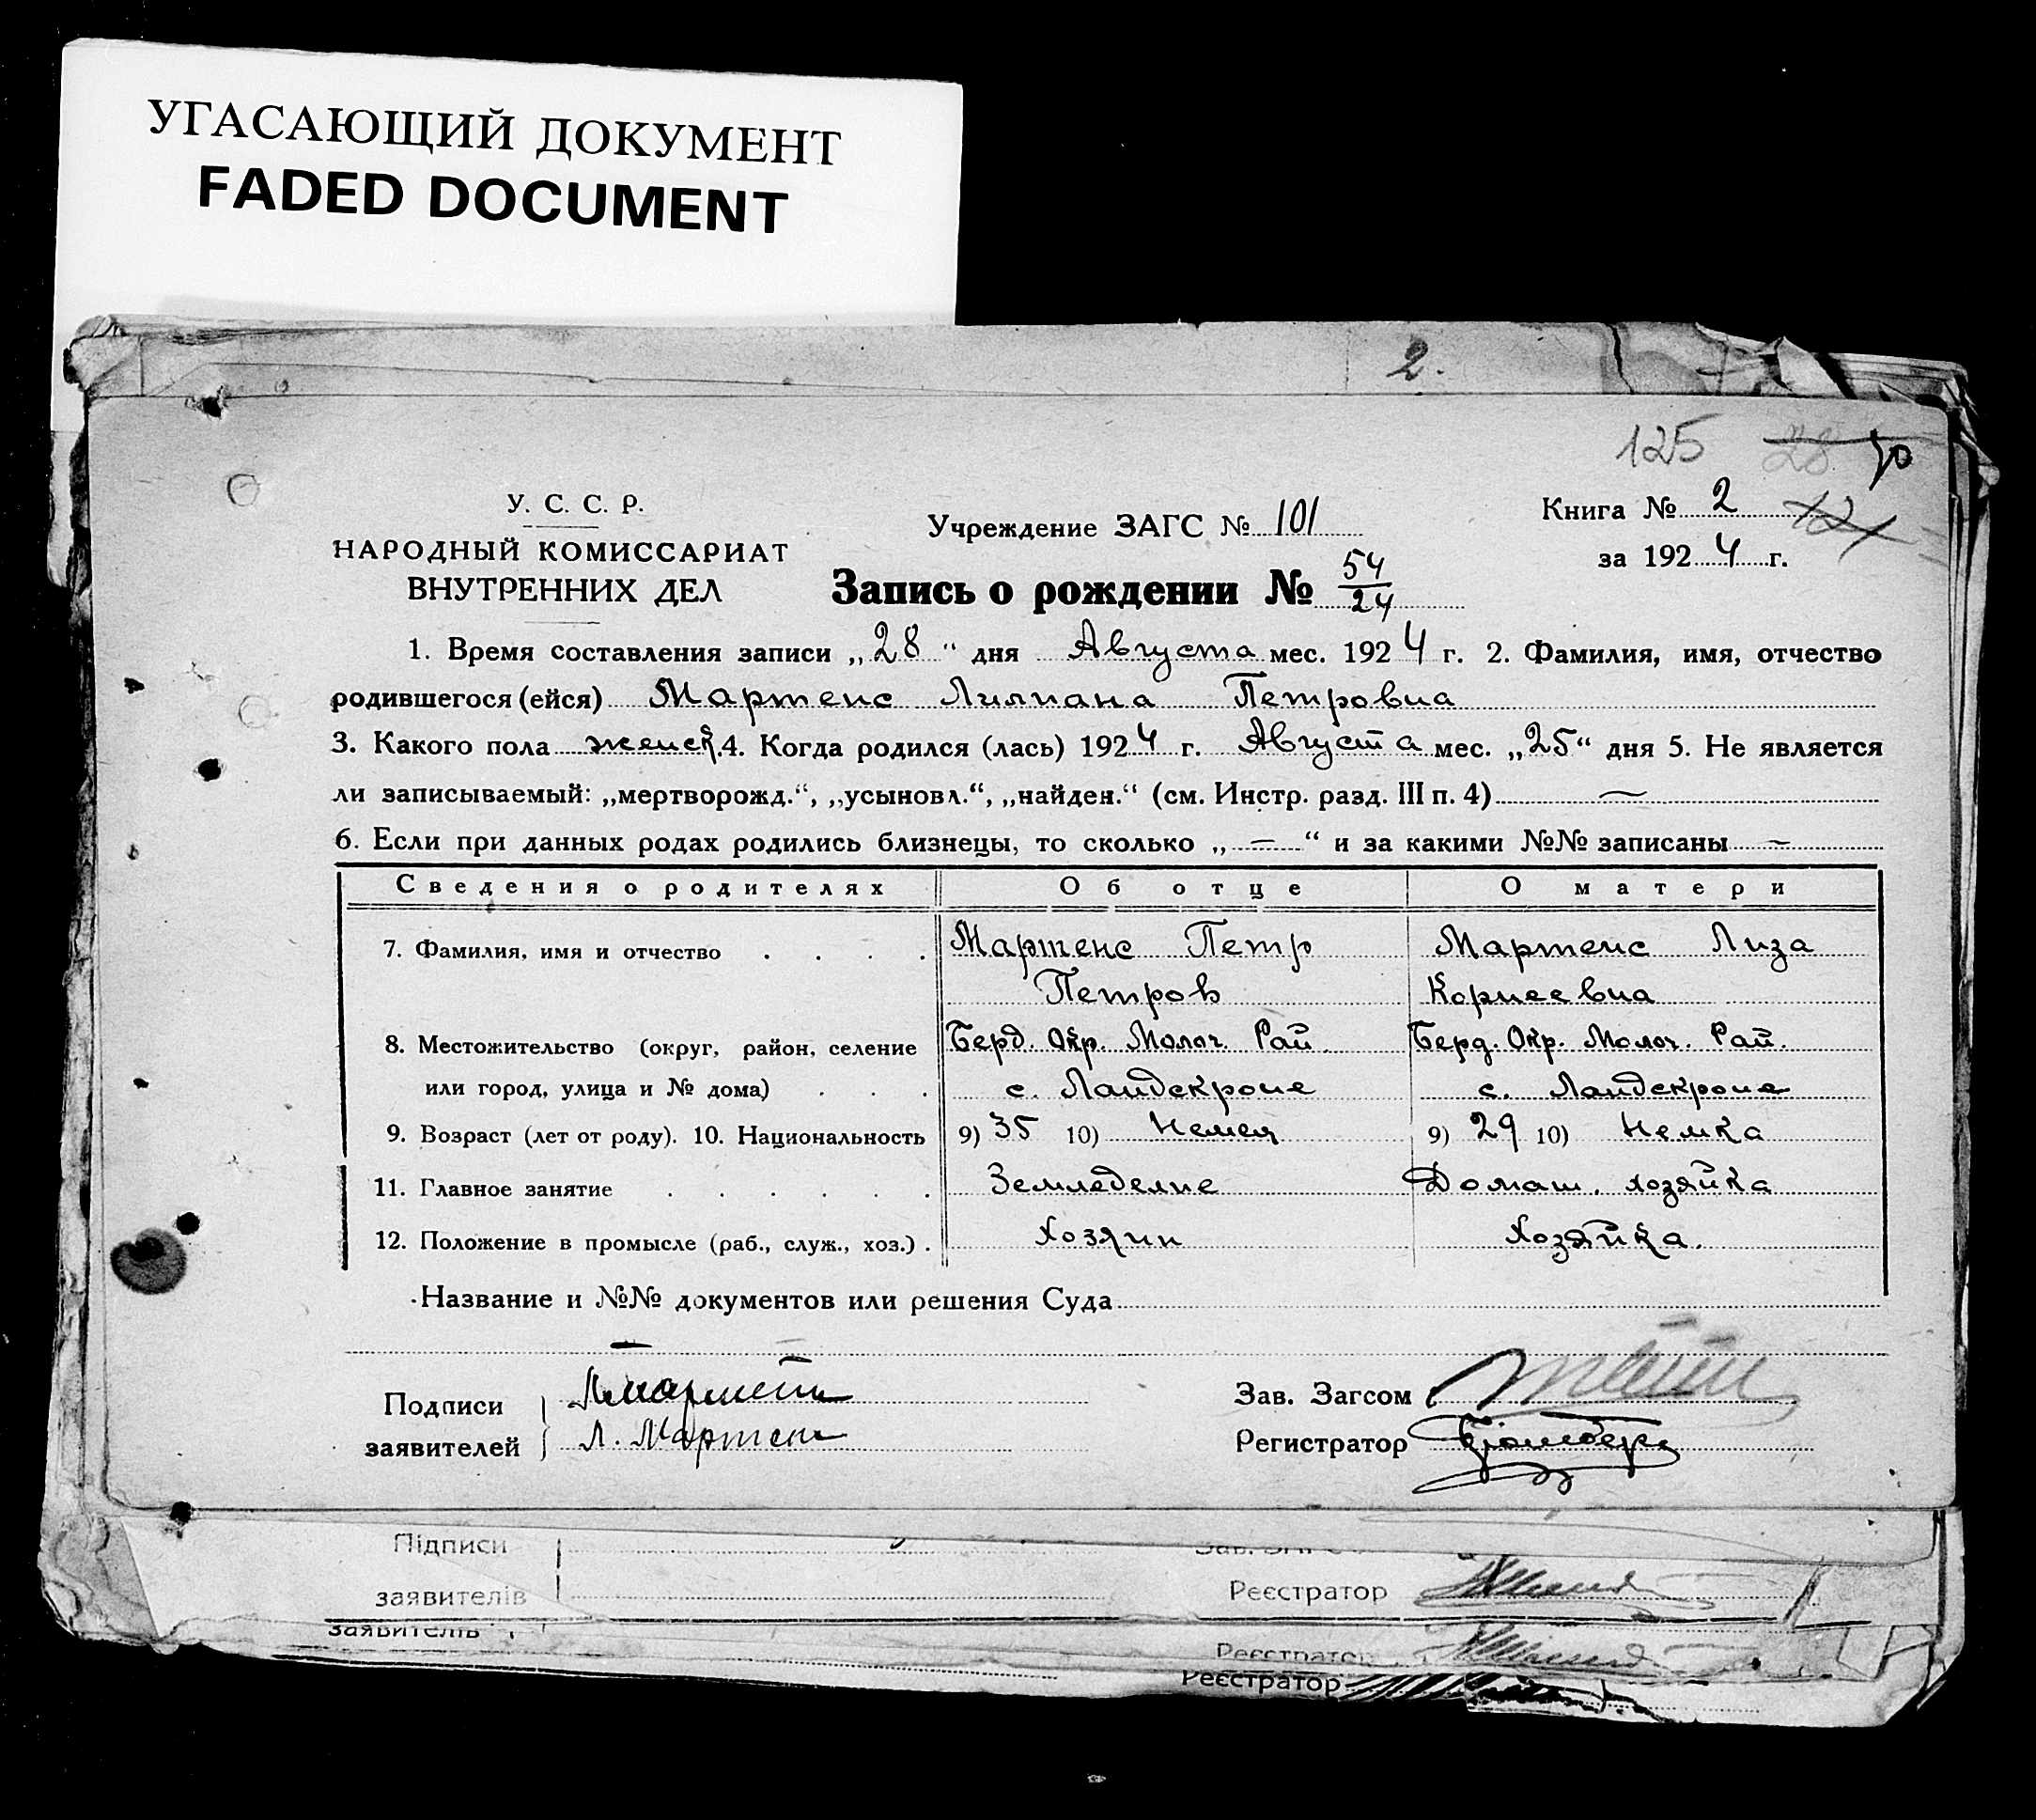 УГАСАЮЩИЙ ДОКУМЕНТ
FADED DOCUMENT
2.
125 28 70
У. С. С. Р.
НАРОДНЫЙ КОМИССАРИАТ
ВНУТРЕННИХ ДЕЛ
Учреждение ЗАГС № 101
Книга № 2 12
за 1924 г.
Запись о рождении № 54/24
1. Время составления записи „28“ дня Августа мес. 1924 г. 2. Фамилия, имя, отчество
родившегося (ейся) Мартенс Лилиана Петровна
3. Какого пола женск. 4. Когда родился (лась) 1924 г. Августа мес. „25“ дня 5. Не является
ли записываемый: „мертворожд.“, „усыновл.“, „найден.“ (см. Инстр. разд. III п. 4) —
6. Если при данных родах родились близнецы, то сколько „—“ и за какими №№ записаны —
Сведения о родителях Об отце О матери
7. Фамилия, имя и отчество . . . . Мартенс Петр Мартенс Лиза
Петров Корнеевна
8. Местожительство (округ, район, селение Берд. Окр. Молоч. Рай. Берд. Окр. Молоч. Рай.
или город, улица и № дома) . . . с. Ландскроне с. Ландскроне
9. Возраст (лет от роду). 10. Национальность 9) 35 10) Немец 9) 29 10) Немка
11. Главное занятие . . . . . . Земледелие Домаш. хозяйка
12. Положение в промысле (раб., служ., хоз.) . Хозяин Хозяйка.
Название и №№ документов или решения Суда
Подписи Мартенс Зав. Загсом
заявителей Л. Мартенс Регистратор
Підписи
заявителів Реєстратор
заявителів Реєстратор
Реєстратор